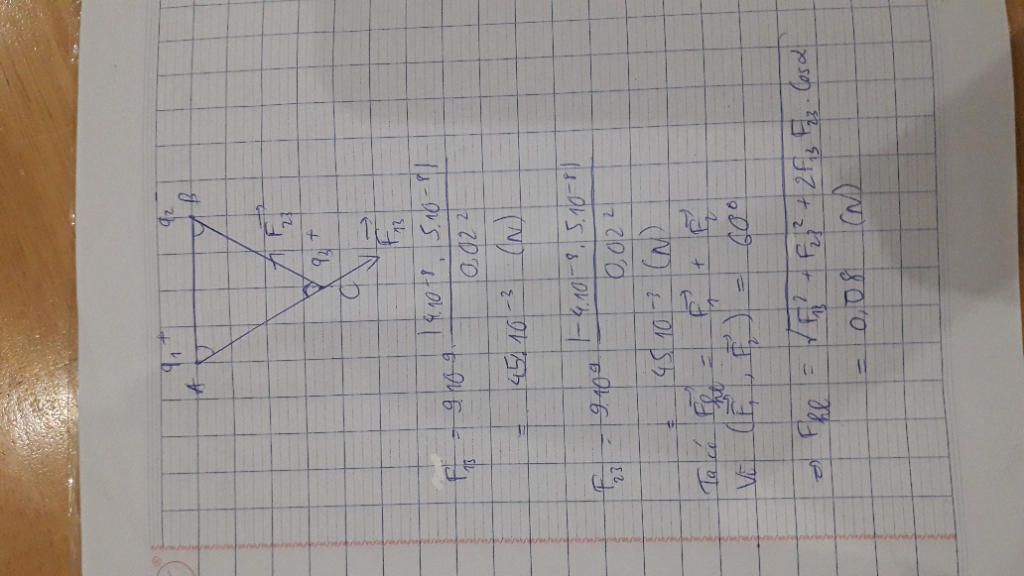 q₁ + q₂ -
A B
F₂₃→
q₃ +
C F₁₃→
F₁₃ = 9.10⁹. |4.10⁻⁸. 5.10⁻⁸| / 0,02²
= 45.10⁻³ (N)
F₂₃ = 9.10⁹ |-4.10⁻⁸. 5.10⁻⁸| / 0,02²
= 45.10⁻³ (N)
Ta có F→hl = F₁→ + F₂→
Vì (F₁→, F₂→) = 60°
⇒ Fhl = √F₁₃² + F₂₃² + 2F₁₃ F₂₃. Cosα
= 0,08 (N)